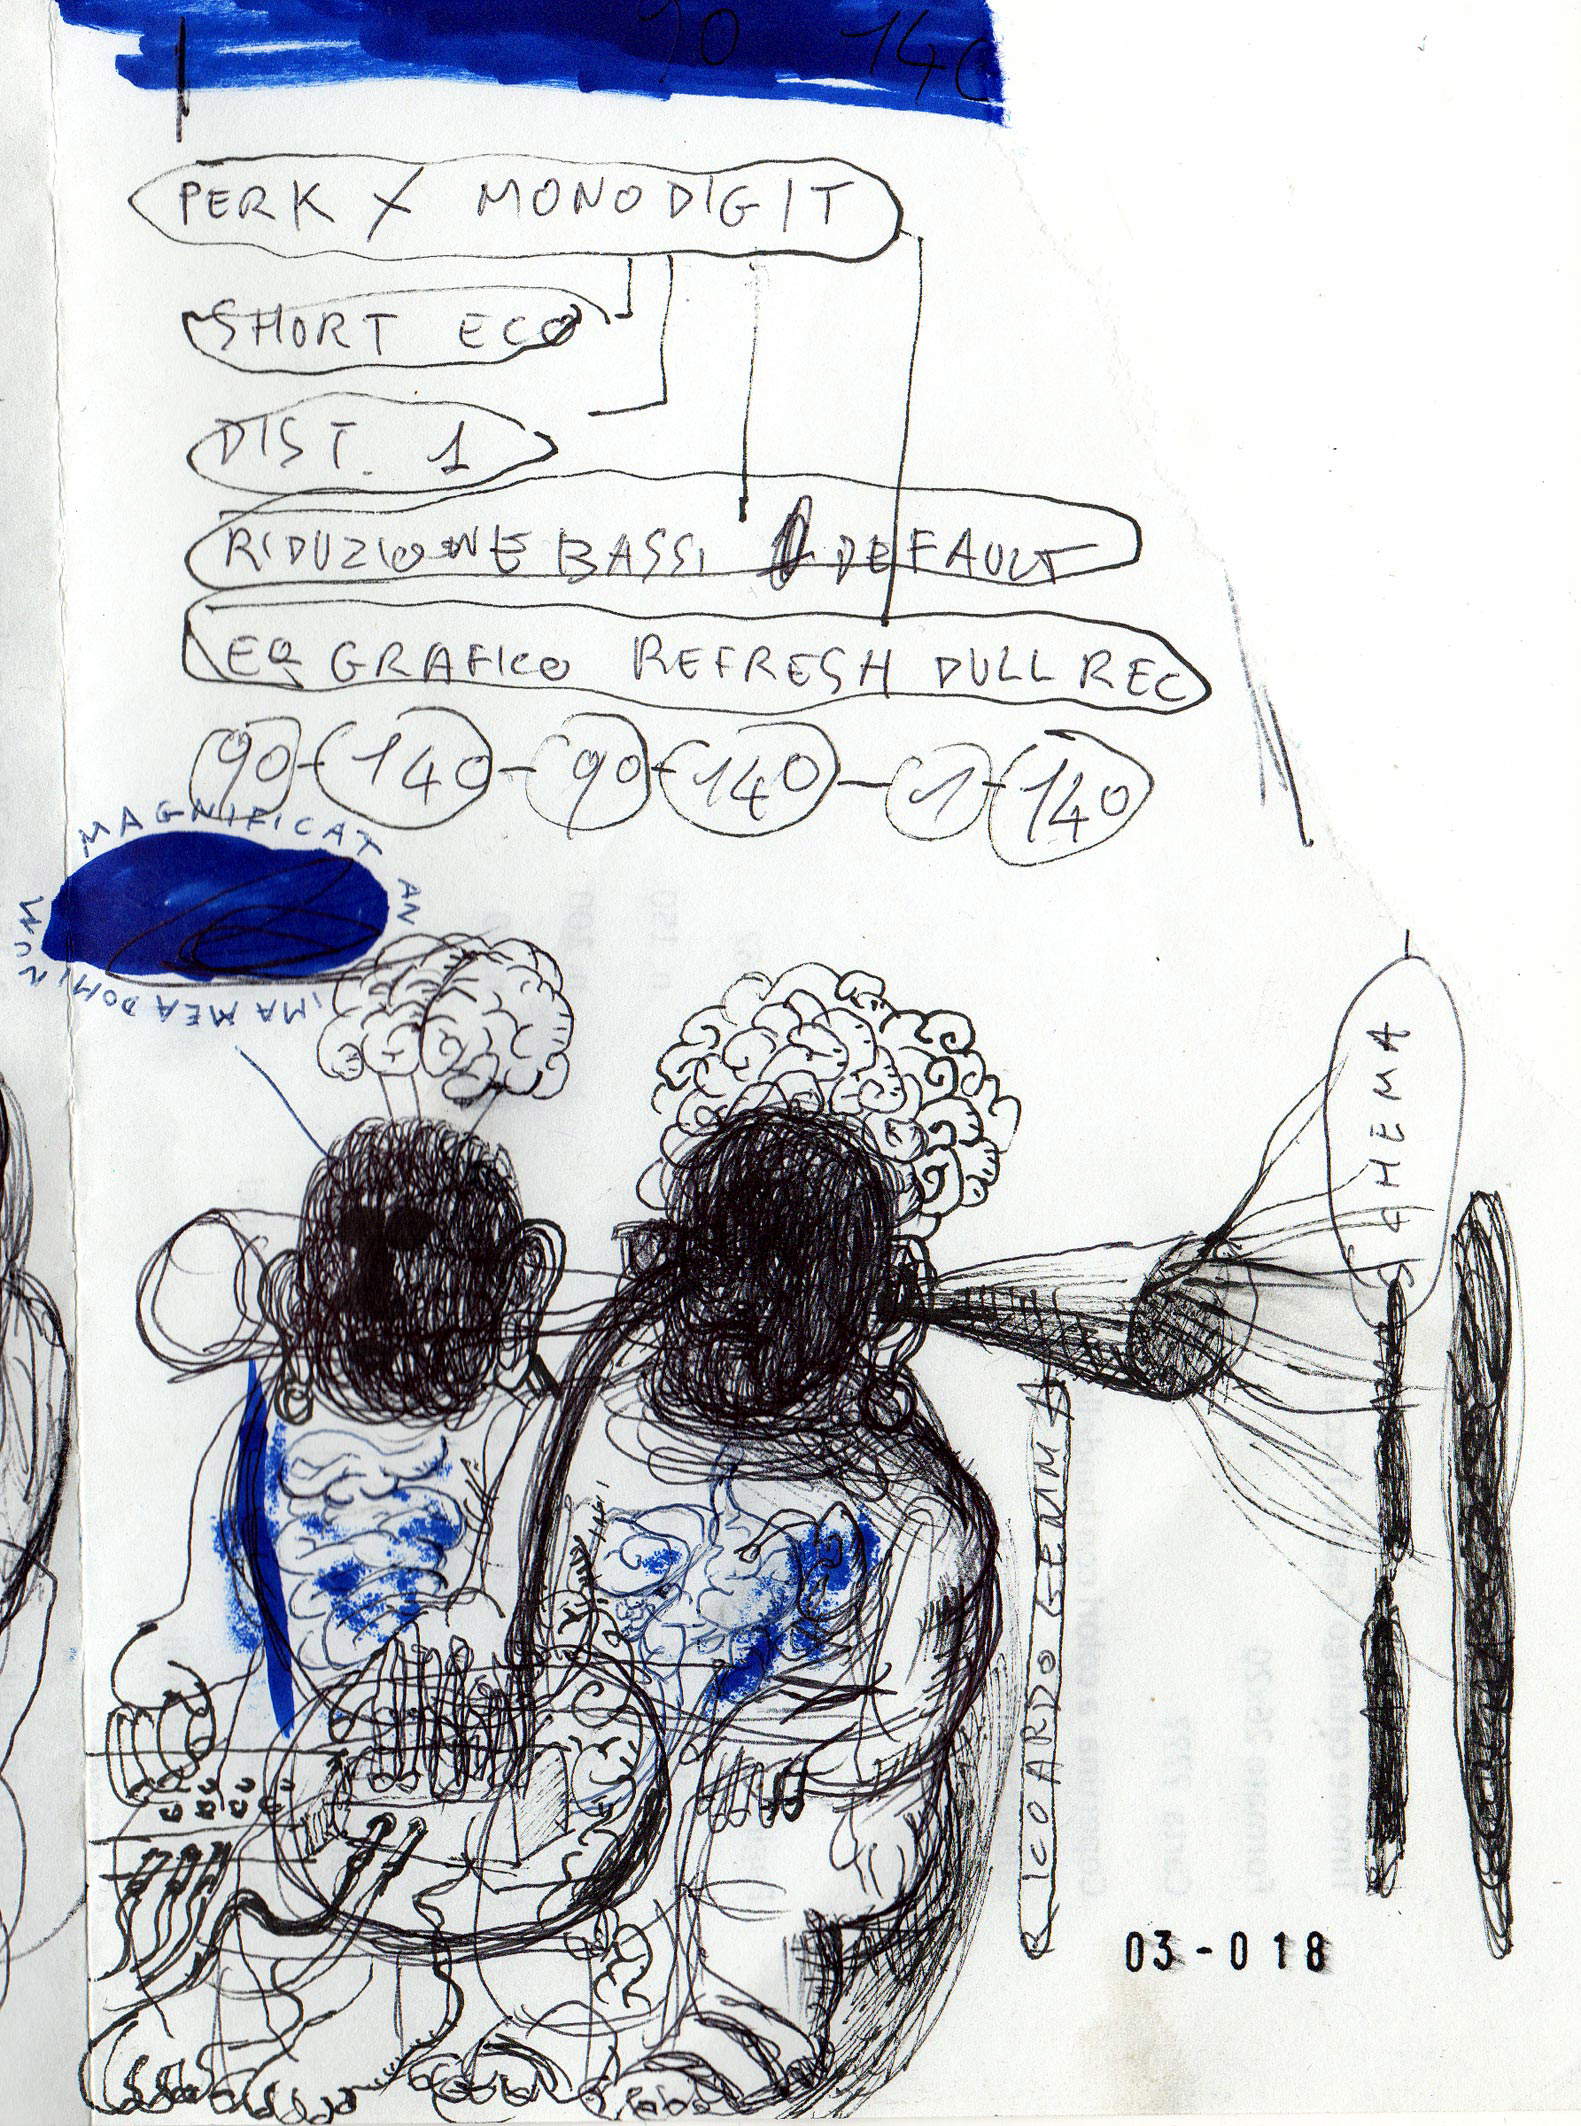 90 140
PERK X MONODIGIT
SHORT ECO
DIST. 1
RIDUZIONE BASSI DEFAULT
EQ GRAFICO REFRESH DULL REC
90-140-90-140-1-140
MAGNIFICAT
AN
IMA MEA DOMI
NUM
RICCARDO GENIMA
03-018